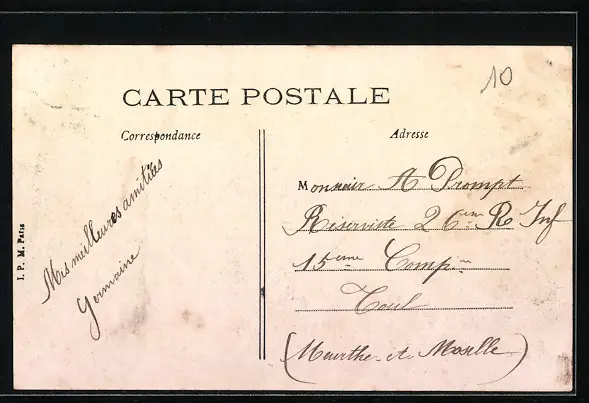 10
CARTE POSTALE
Correspondance
Adresse
Mes meilleures amitiées
Germaine
Monsieur A Prompt
Réserviste 26ième R Inf
15ème Comp.ie
Toul
(Meurthe et Moselle)
I. P. M. Paris